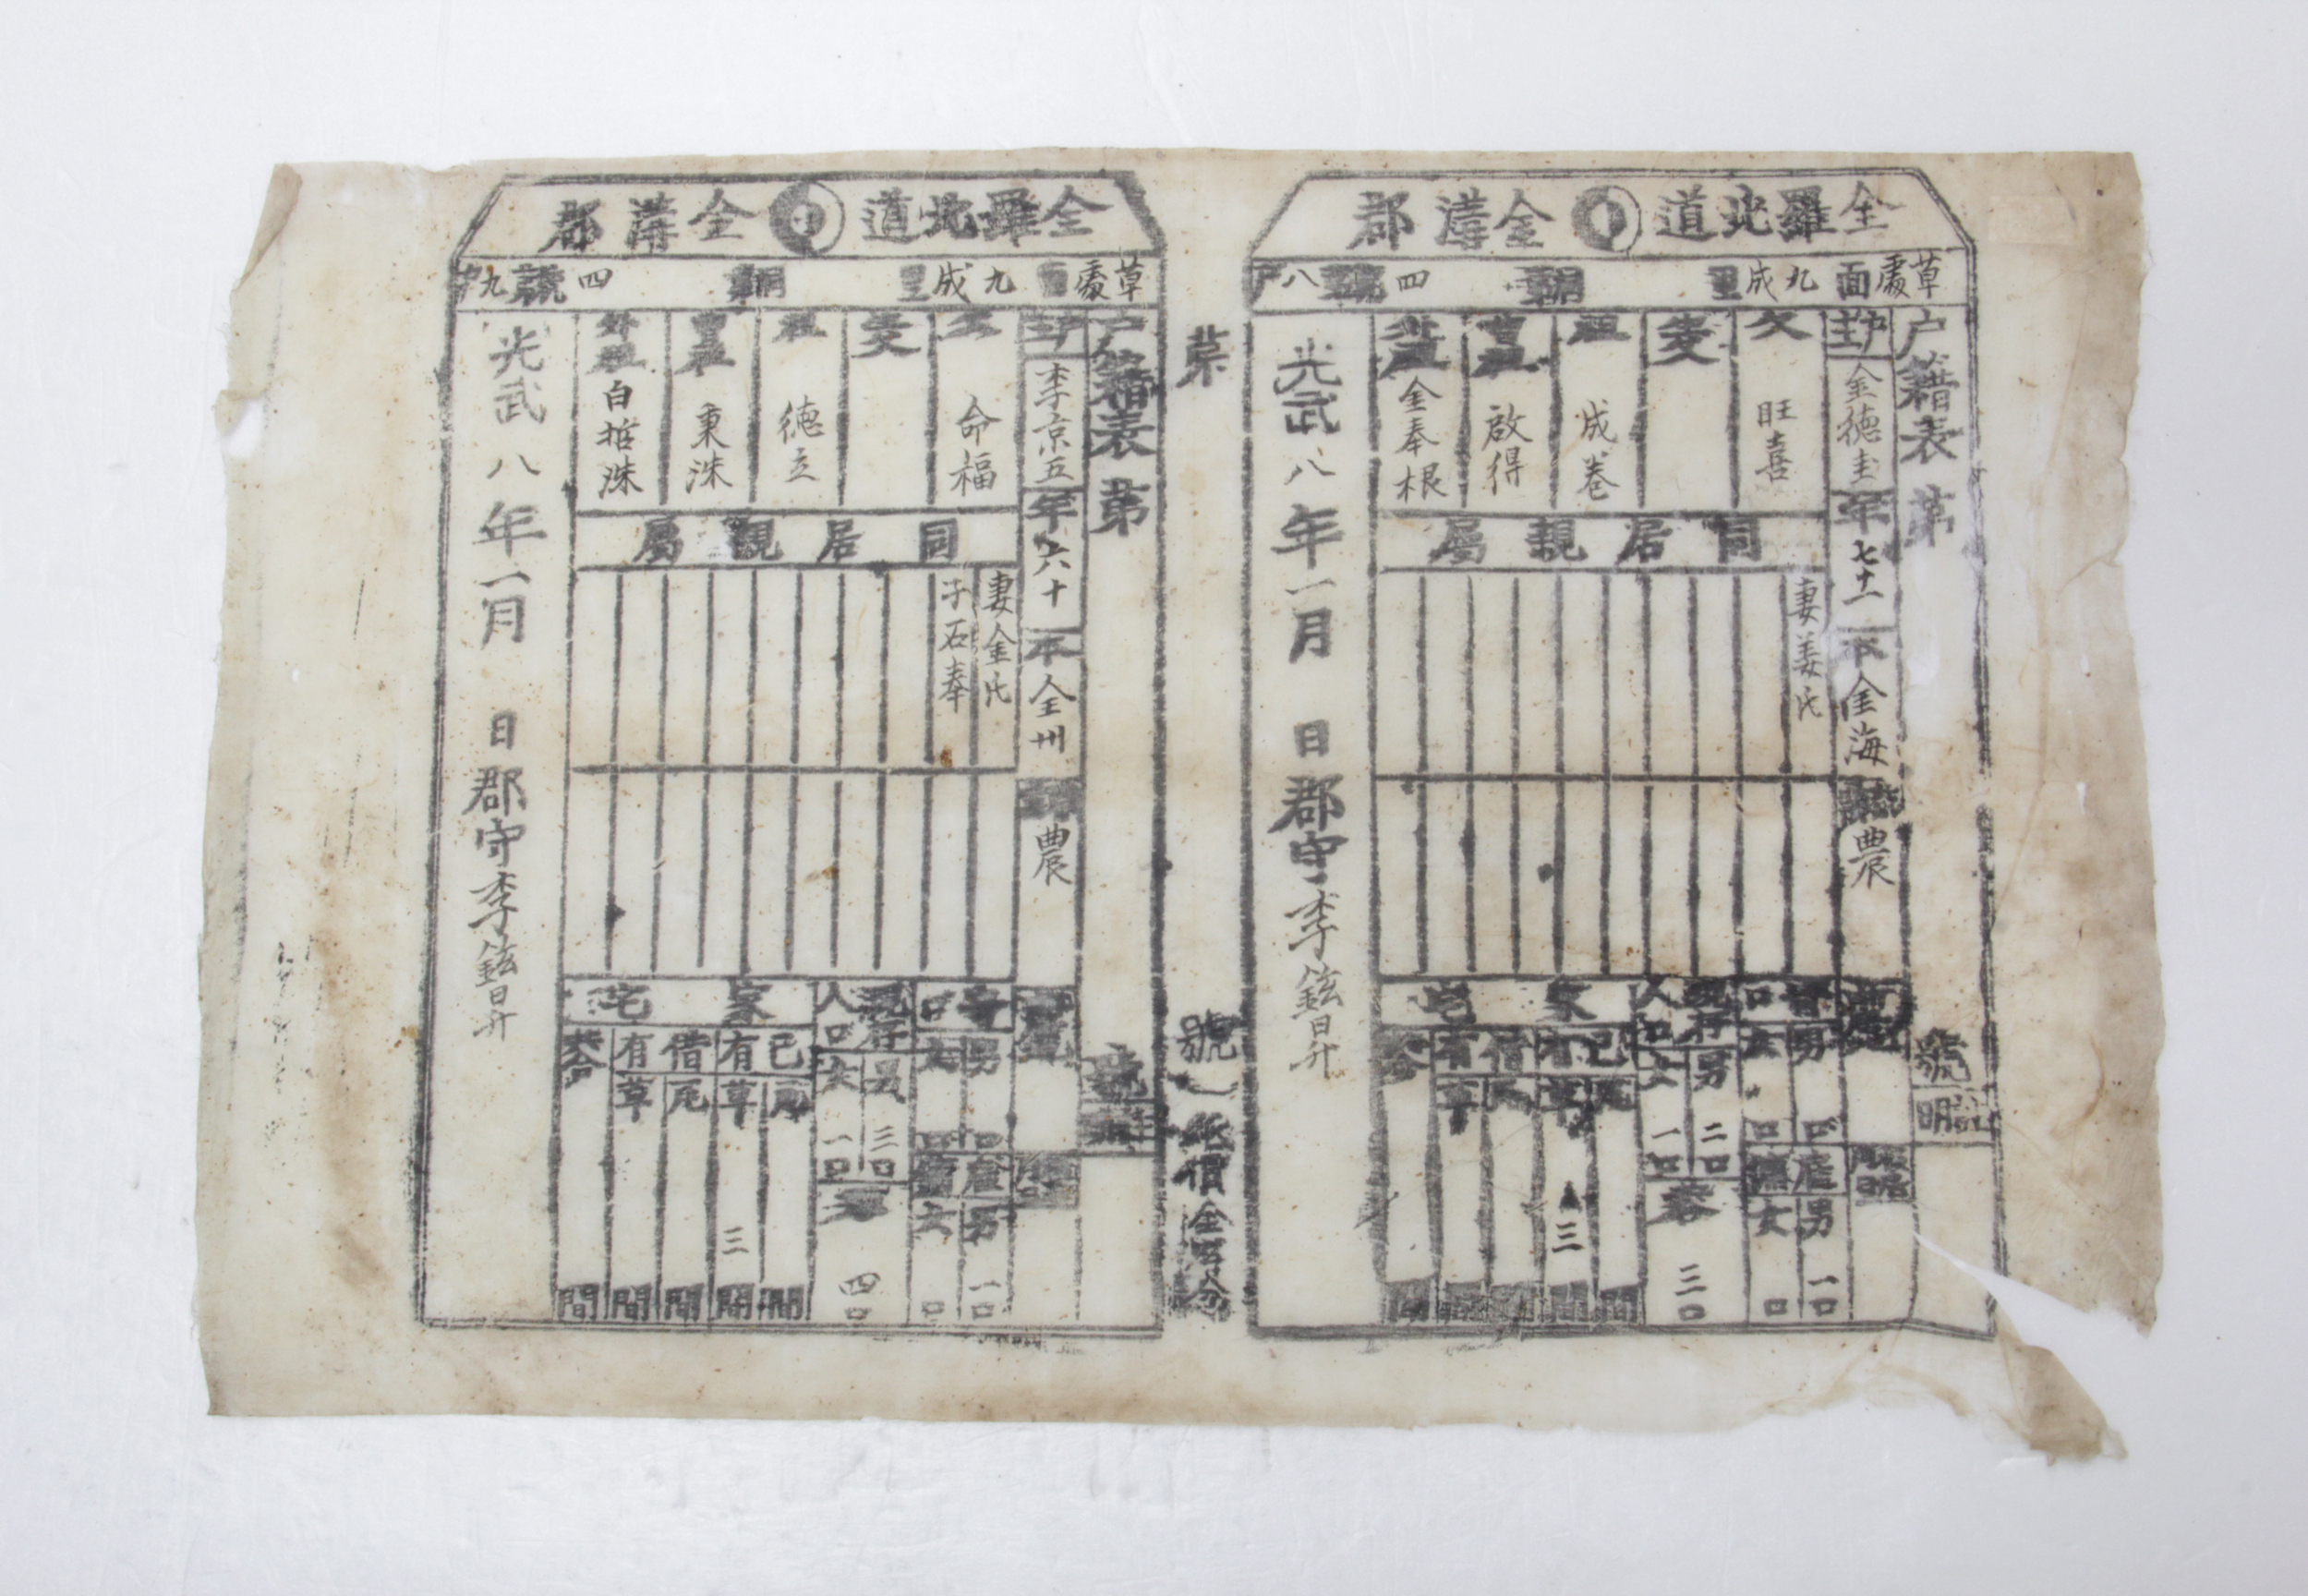 全羅北道 金溝郡
草處面 九成里 統四號八戶
戶籍表 第 號
戶主 金德圭 年七十一 本金海 農
父 旺喜
生父
祖 成卷
曾祖 啟得
外祖 金奉根
同居親屬
妻姜氏
寄口 男 口 女 口
雇傭 男 一口 女 口
現存人口 男 二口 女 一口
共 三口
家宅
己有 瓦 間 草 三間
借有 瓦 間 草 間
共合 間
光武八年一月 日 郡守 李鉉昇
第 號
紙價金五分
全羅北道 金溝郡
草處面 九成里 統四號九戶
戶籍表 第 號
戶主 李京五 年六十 本全州 農
父 命福
生父
祖 德立
曾祖 東洙
外祖 白哲洙
同居親屬
妻金氏
子石奉
寄口 男 口 女 口
雇傭 男 一口 女 口
現存人口 男 三口 女 一口
共 四口
家宅
己有 瓦 間 草 三間
借有 瓦 間 草 間
共合 間
光武八年一月 日 郡守 李鉉昇